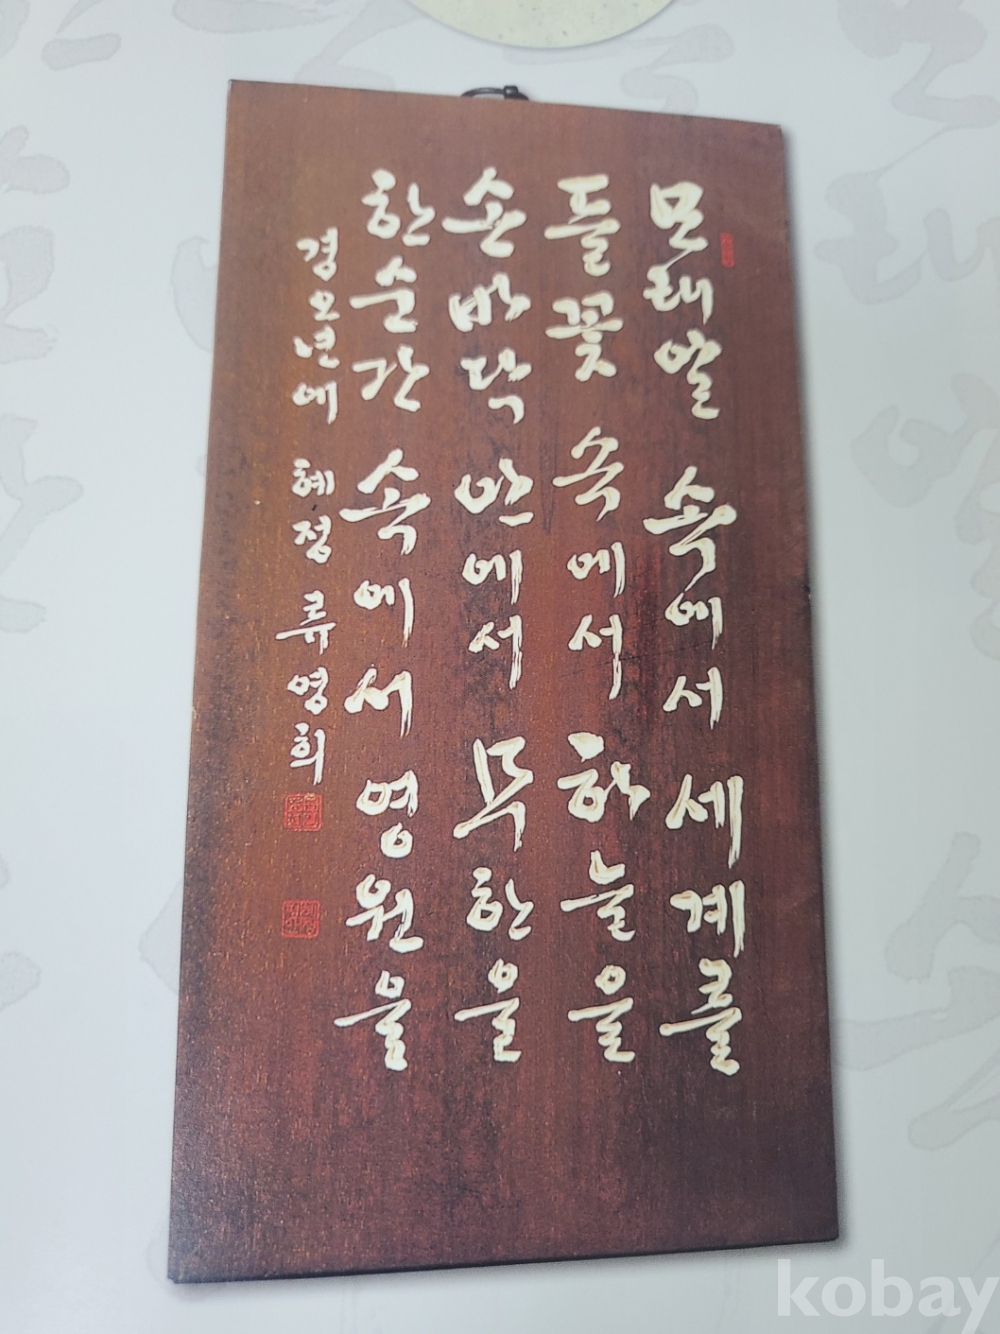 모래알 속에서 세계를
들꽃 속에서 하늘을
손바닥 안에서 무한을
한순간 속에서 영원을
경오년에 혜정 류영희
kobay